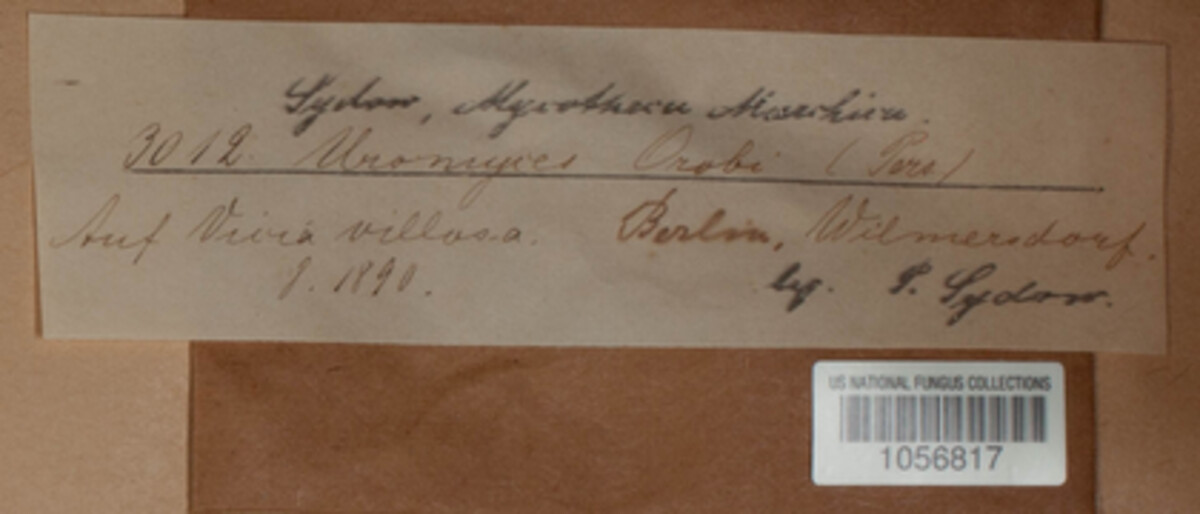 Sydow, Mycotheca Marchica.
3012. Uromyces Orobi (Pers)
Auf Vicia villosa. Berlin, Wilmersdorf.
8. 1890. leg. P. Sydow.
US NATIONAL FUNGUS COLLECTIONS
1056817